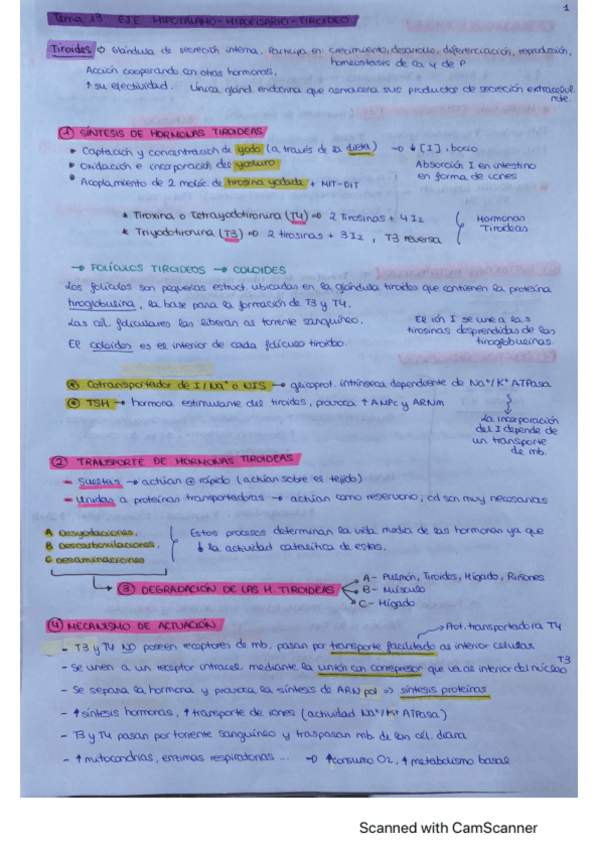 1
Tema 13 EJE HIPOTÁLAMO-HIPOFISARIO-TIROIDEO
Tiroides → Glándula de secreción interna. Participa en crecimiento, desarrollo, diferenciación, reproducción,
homeostasis de Ca y de P
Acción cooperando con otras hormonas,
↑ su efectividad. Única glánd. endocrina que almacena sus productos de secreción extracelul.
mte.
① SÍNTESIS DE HORMONAS TIROIDEAS
• Captación y concentración de yodo (a través de la dieta) → ↓ [I], bocio
• Oxidación e incorporación del yoduro
Absorción I en intestino
en forma de iones
• Acoplamiento de 2 moléc. de tirosina yodada + MIT-DIT
* Tiroxina o Tetrayodotironina (T4) ⇒ 2 Tirosinas + 4 I2
* Triyodotironina (T3) ⇒ 2 tirosinas + 3 I2, T3 reversa
Hormonas
Tiroideas
→ FOLÍCULOS TIROIDEOS → COLOIDES
Los folículos son pequeñas estruct. ubicadas en la glándula tiroides que contienen la proteína
tiroglobulina, la base para la formación de T3 y T4.
Las cél. foliculares las liberan al torrente sanguíneo.
El coloides es el interior de cada folículo tiroideo.
El ión I se une a las
tirosinas desprendidas de las
tiroglobulinas.
Cotransportador de I/Na+ o NIS → glicoprot. intrínseca dependiente de Na+/K+ ATPasa
TSH → hormona estimulante del tiroides, provoca ↑ AMPc y ARNm
La incorporación
del I depende de
un transporte
de mb.
② TRANSPORTE DE HORMONAS TIROIDEAS
- Sueltas → actúan ⊕ rápido (actúan sobre el tejido)
- Unidas a proteínas transportadoras → actúan como reservorio, cd son muy necesarias
A Desyodaciones,
B Descarboxilaciones,
C Desaminaciones
Estos procesos determinan la vida media de las hormonas ya que
↓ la actividad catalítica de estas.
③ DEGRADACIÓN DE LAS H. TIROIDEAS
A- Pulmón, Tiroides, Hígado, Riñones
B- Músculo
C- Hígado
④ MECANISMO DE ACTUACIÓN
Prot. transportadora T4
- T3 y T4 NO poseen receptores de mb, pasan por transporte facilitado al interior celular
- Se unen a un receptor intracel. mediante la unión con correpresor que va al interior del núcleo T3
- Se separa la hormona y provoca la síntesis de ARN pol ⇒ síntesis proteínas
- ↑ síntesis hormonas, ↑ transporte de iones (actividad Na+/K+ ATPasa)
- T3 y T4 pasan por torrente sanguíneo y traspasan mb. de las cél. diana
- ↑ mitocondrias, enzimas respiratorias ... → ↑ consumo O2, ↑ metabolismo basal
Scanned with CamScanner